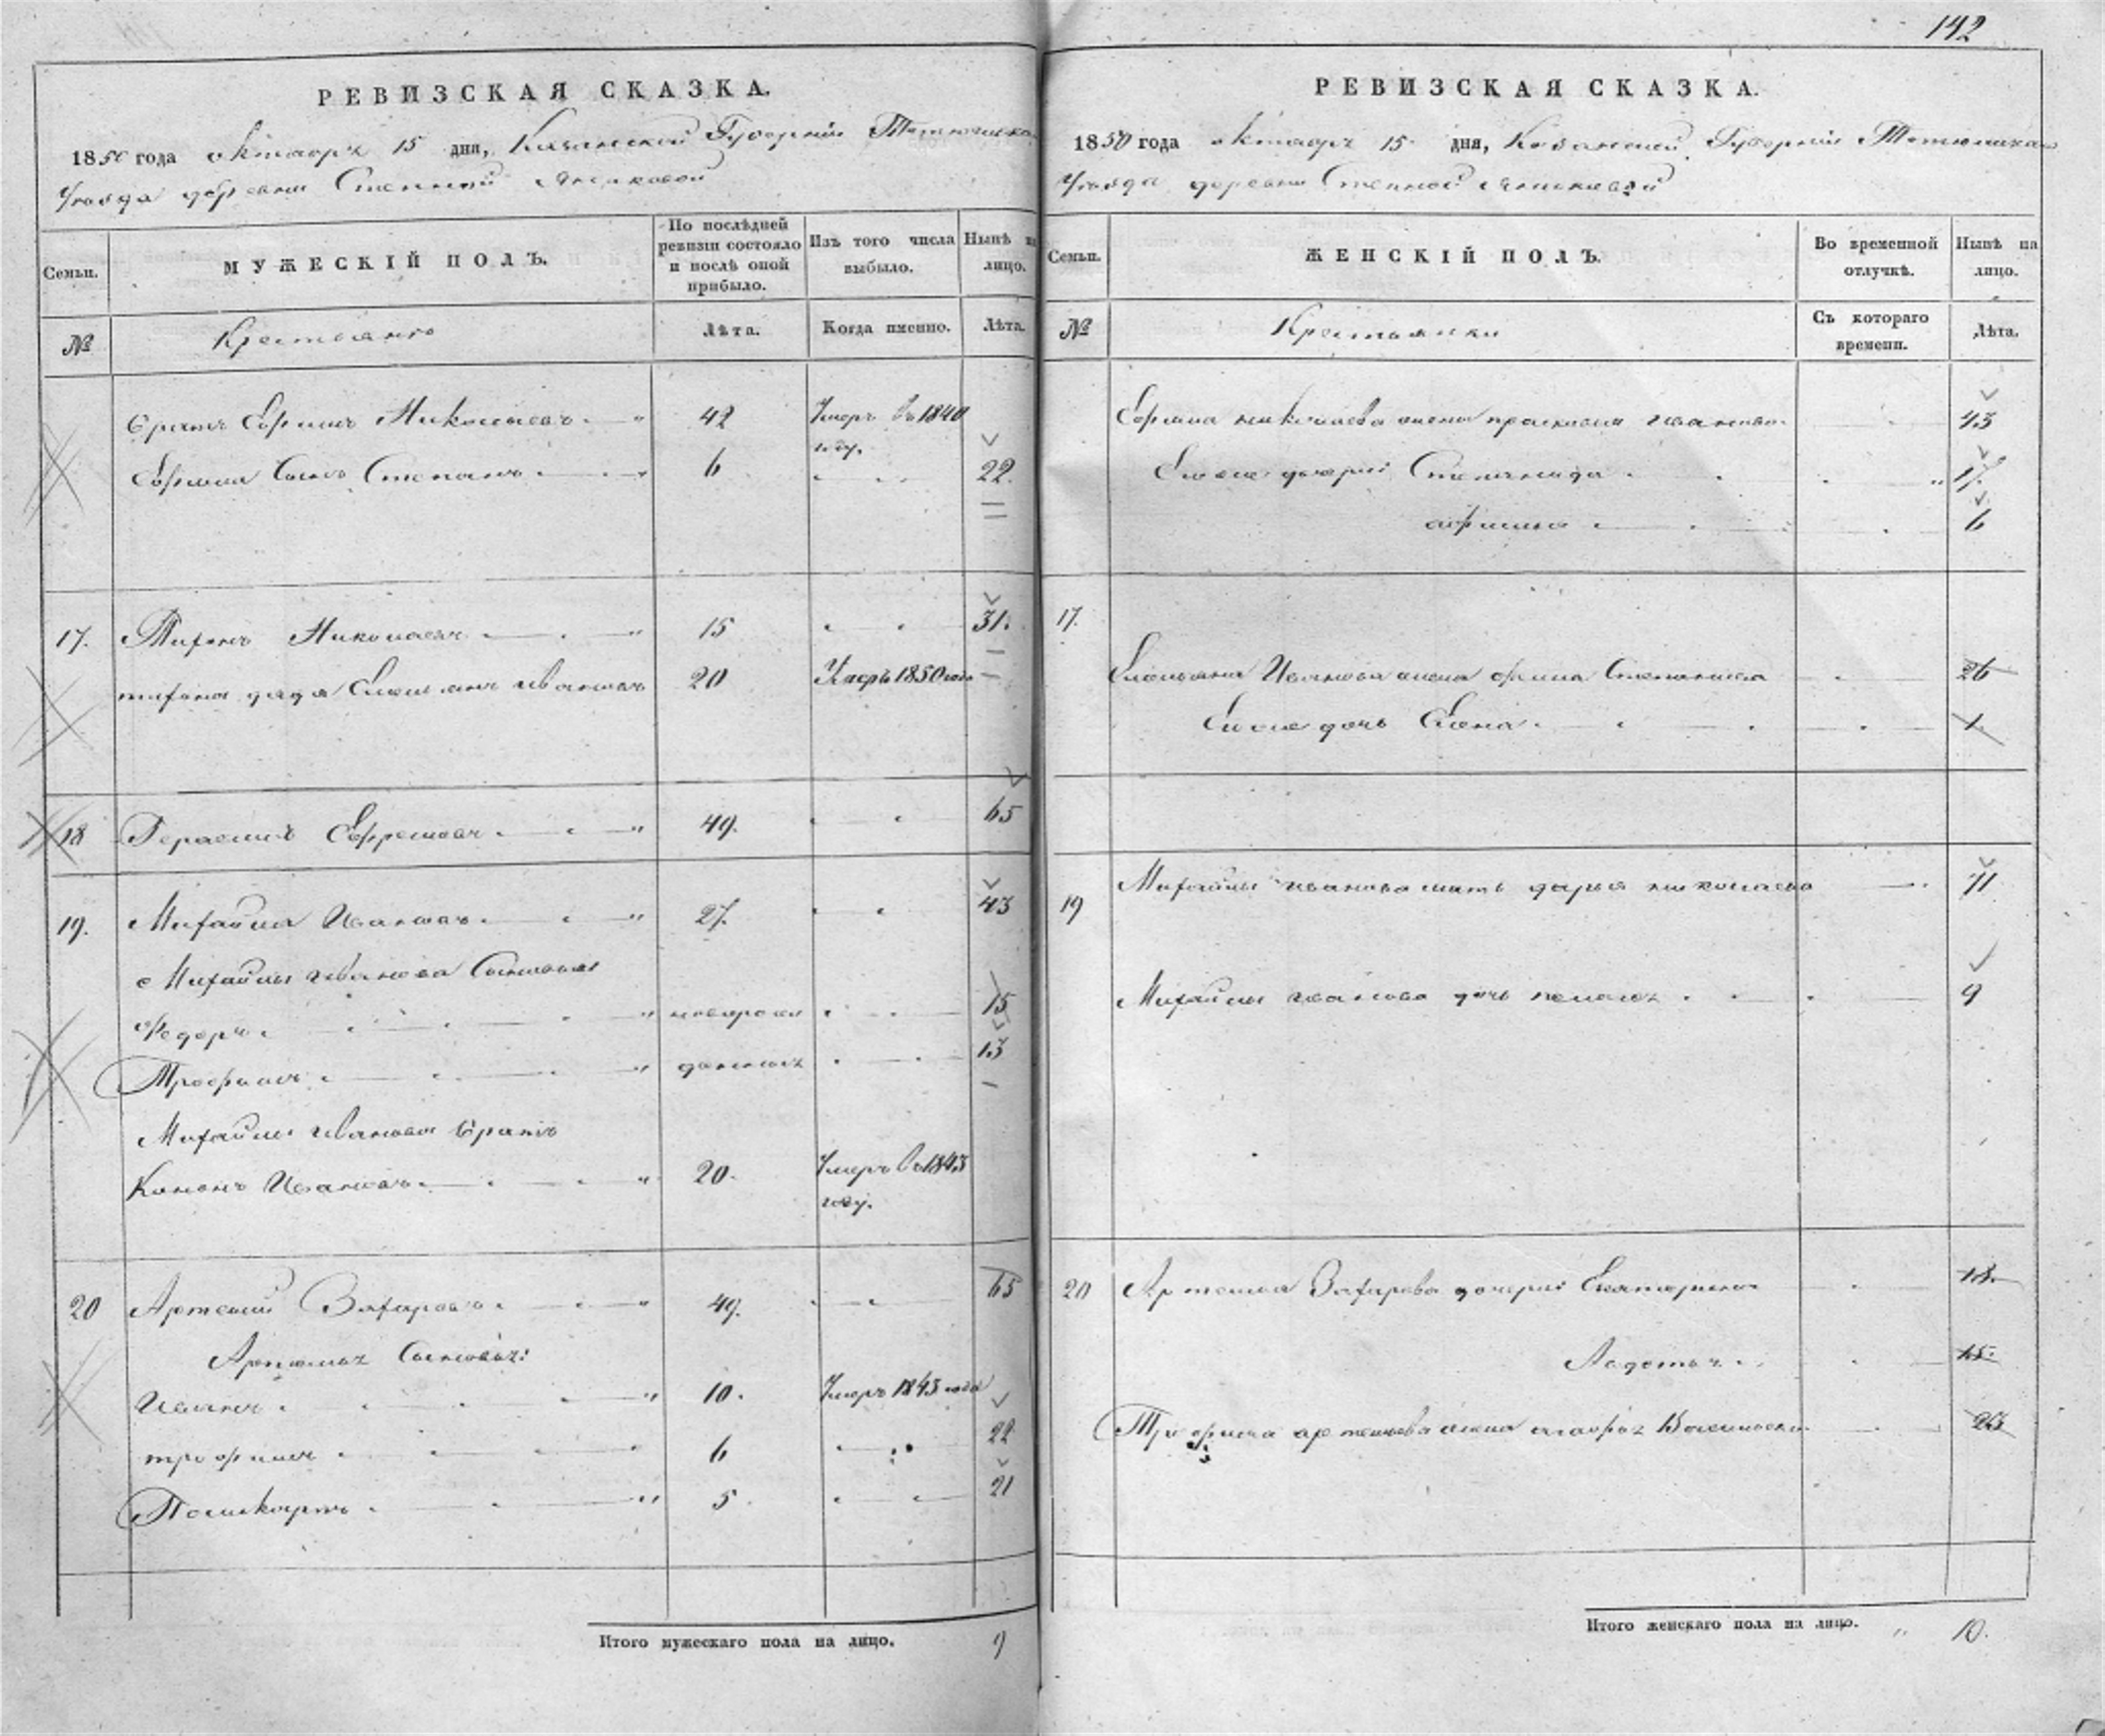 142
РЕВИЗСКАЯ СКАЗКА.
1850 года октября 15 дня, Казанской Губернии Тетюшска
Уезда деревни Степной
Семьи.
МУЖЕСКІЙ ПОЛЪ.
По послѣдней ревизіи состояло и послѣ оной прибыло.
Изъ того числа выбыло.
Нынѣ на лицо.
№
Крестьяне
Лѣта.
Когда именно.
Лѣта.
братъ Ефимъ Николаевъ 42 Умеръ въ 1840
году.
Ефима сынъ Степанъ 6 22.
17. Тихонъ Николаевъ 15 31.
тихона дядя Емельянъ Ивановъ 20 Умеръ 1850 года
18 Герасимъ Ефремовъ 49. 65
19. Михайла Ивановъ 27. 43
Михайлы Иванова Сыновья
Федоръ новорож 15
Трофимъ денныя 13
Михайлы Иванова братъ
Кононъ Ивановъ 20. Умеръ въ 1843
году.
20 Артемий Захаровъ 49. 65
Сыновья:
Иванъ 10. Умеръ 1843 года
трофимъ 6 22
Поликарпъ 5 21
Итого мужескаго пола на лицо. 9
РЕВИЗСКАЯ СКАЗКА.
1850 года октября 15 дня, Казанской Губернии Тетюшска
Уезда деревни Степной
Семьи.
ЖЕНСКІЙ ПОЛЪ.
Во временной отлучкѣ.
Нынѣ на лицо.
№
Крестьянки
Съ котораго времени.
Лѣта.
Ефима николаева жена прасковья Иванова 43
дочери Степанида 17.
6
17.
Емельяна Иванова жена Степанова 26
дочь Елена 1.
19 Михайлы Иванова мать дарья николаева 71
Михайлы Иванова дочь 9
20 Артемья Захарова дочери Екатерина 18.
Авдотья 15.
Трофима артемьева жена Васильева 23
Итого женскаго пола на лицо. 10.